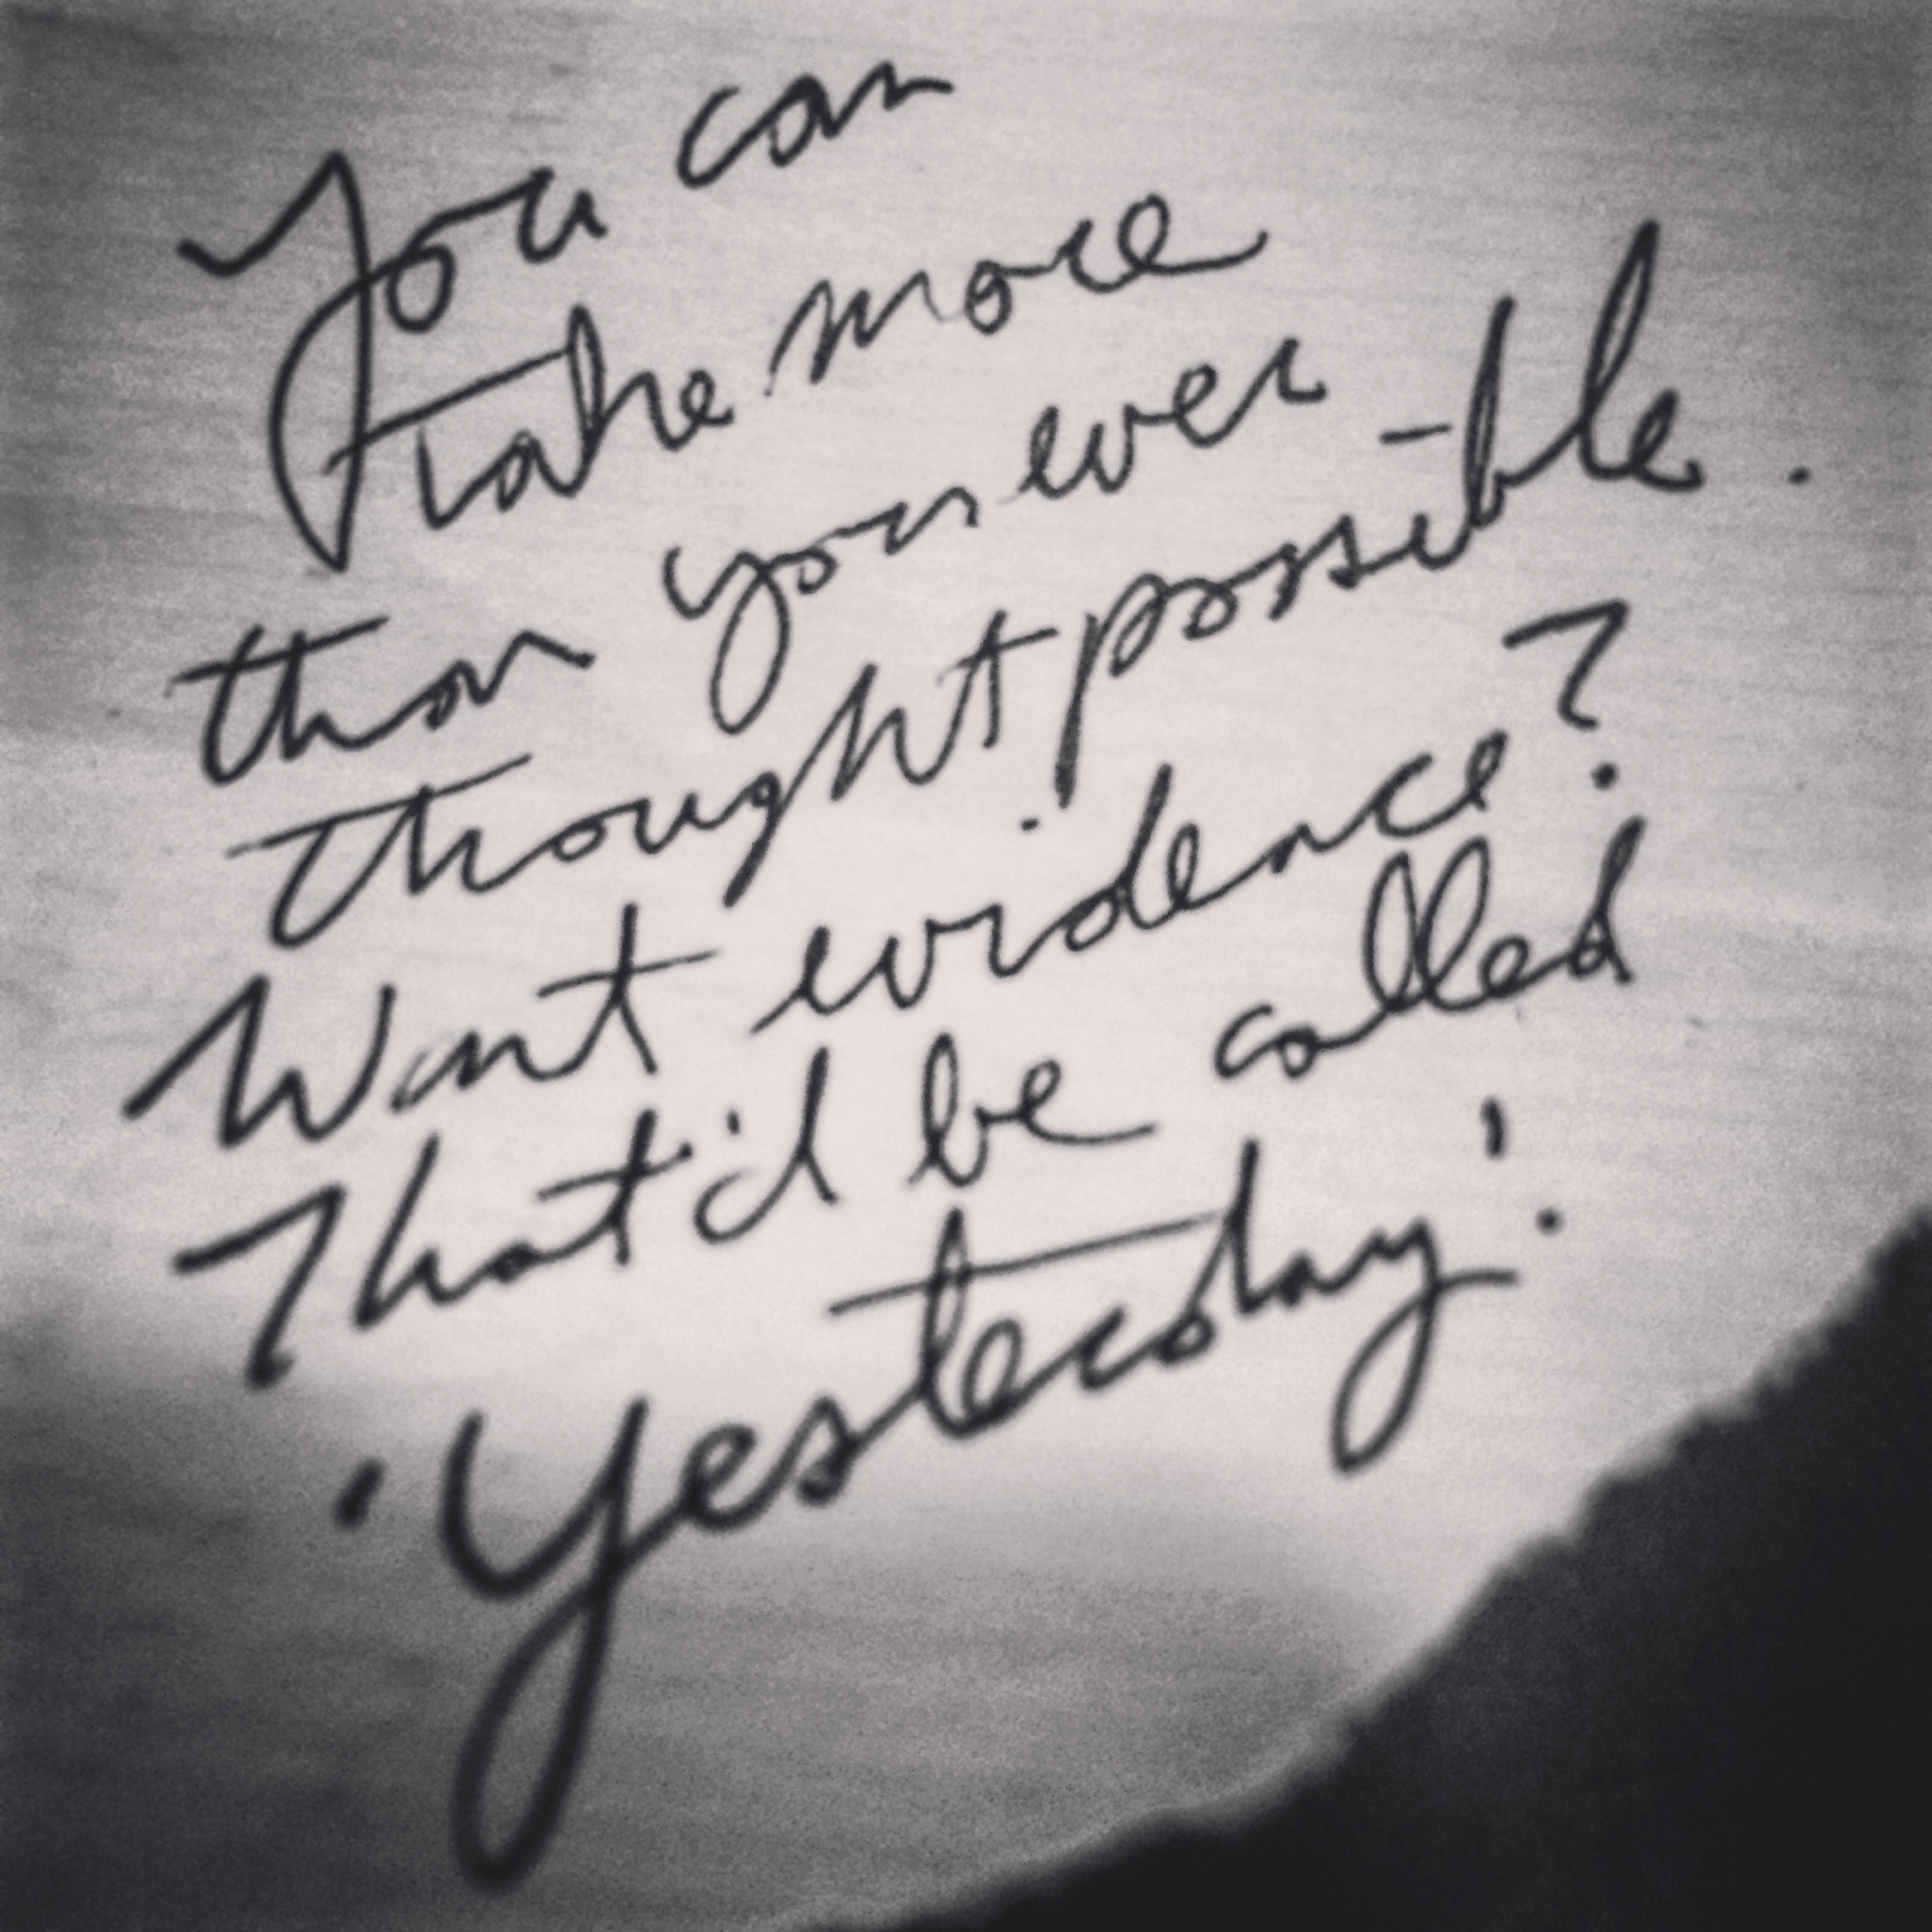 You can
take more
than you ever
thought possible.
Want evidence?
That'd be called
'Yesterday'.